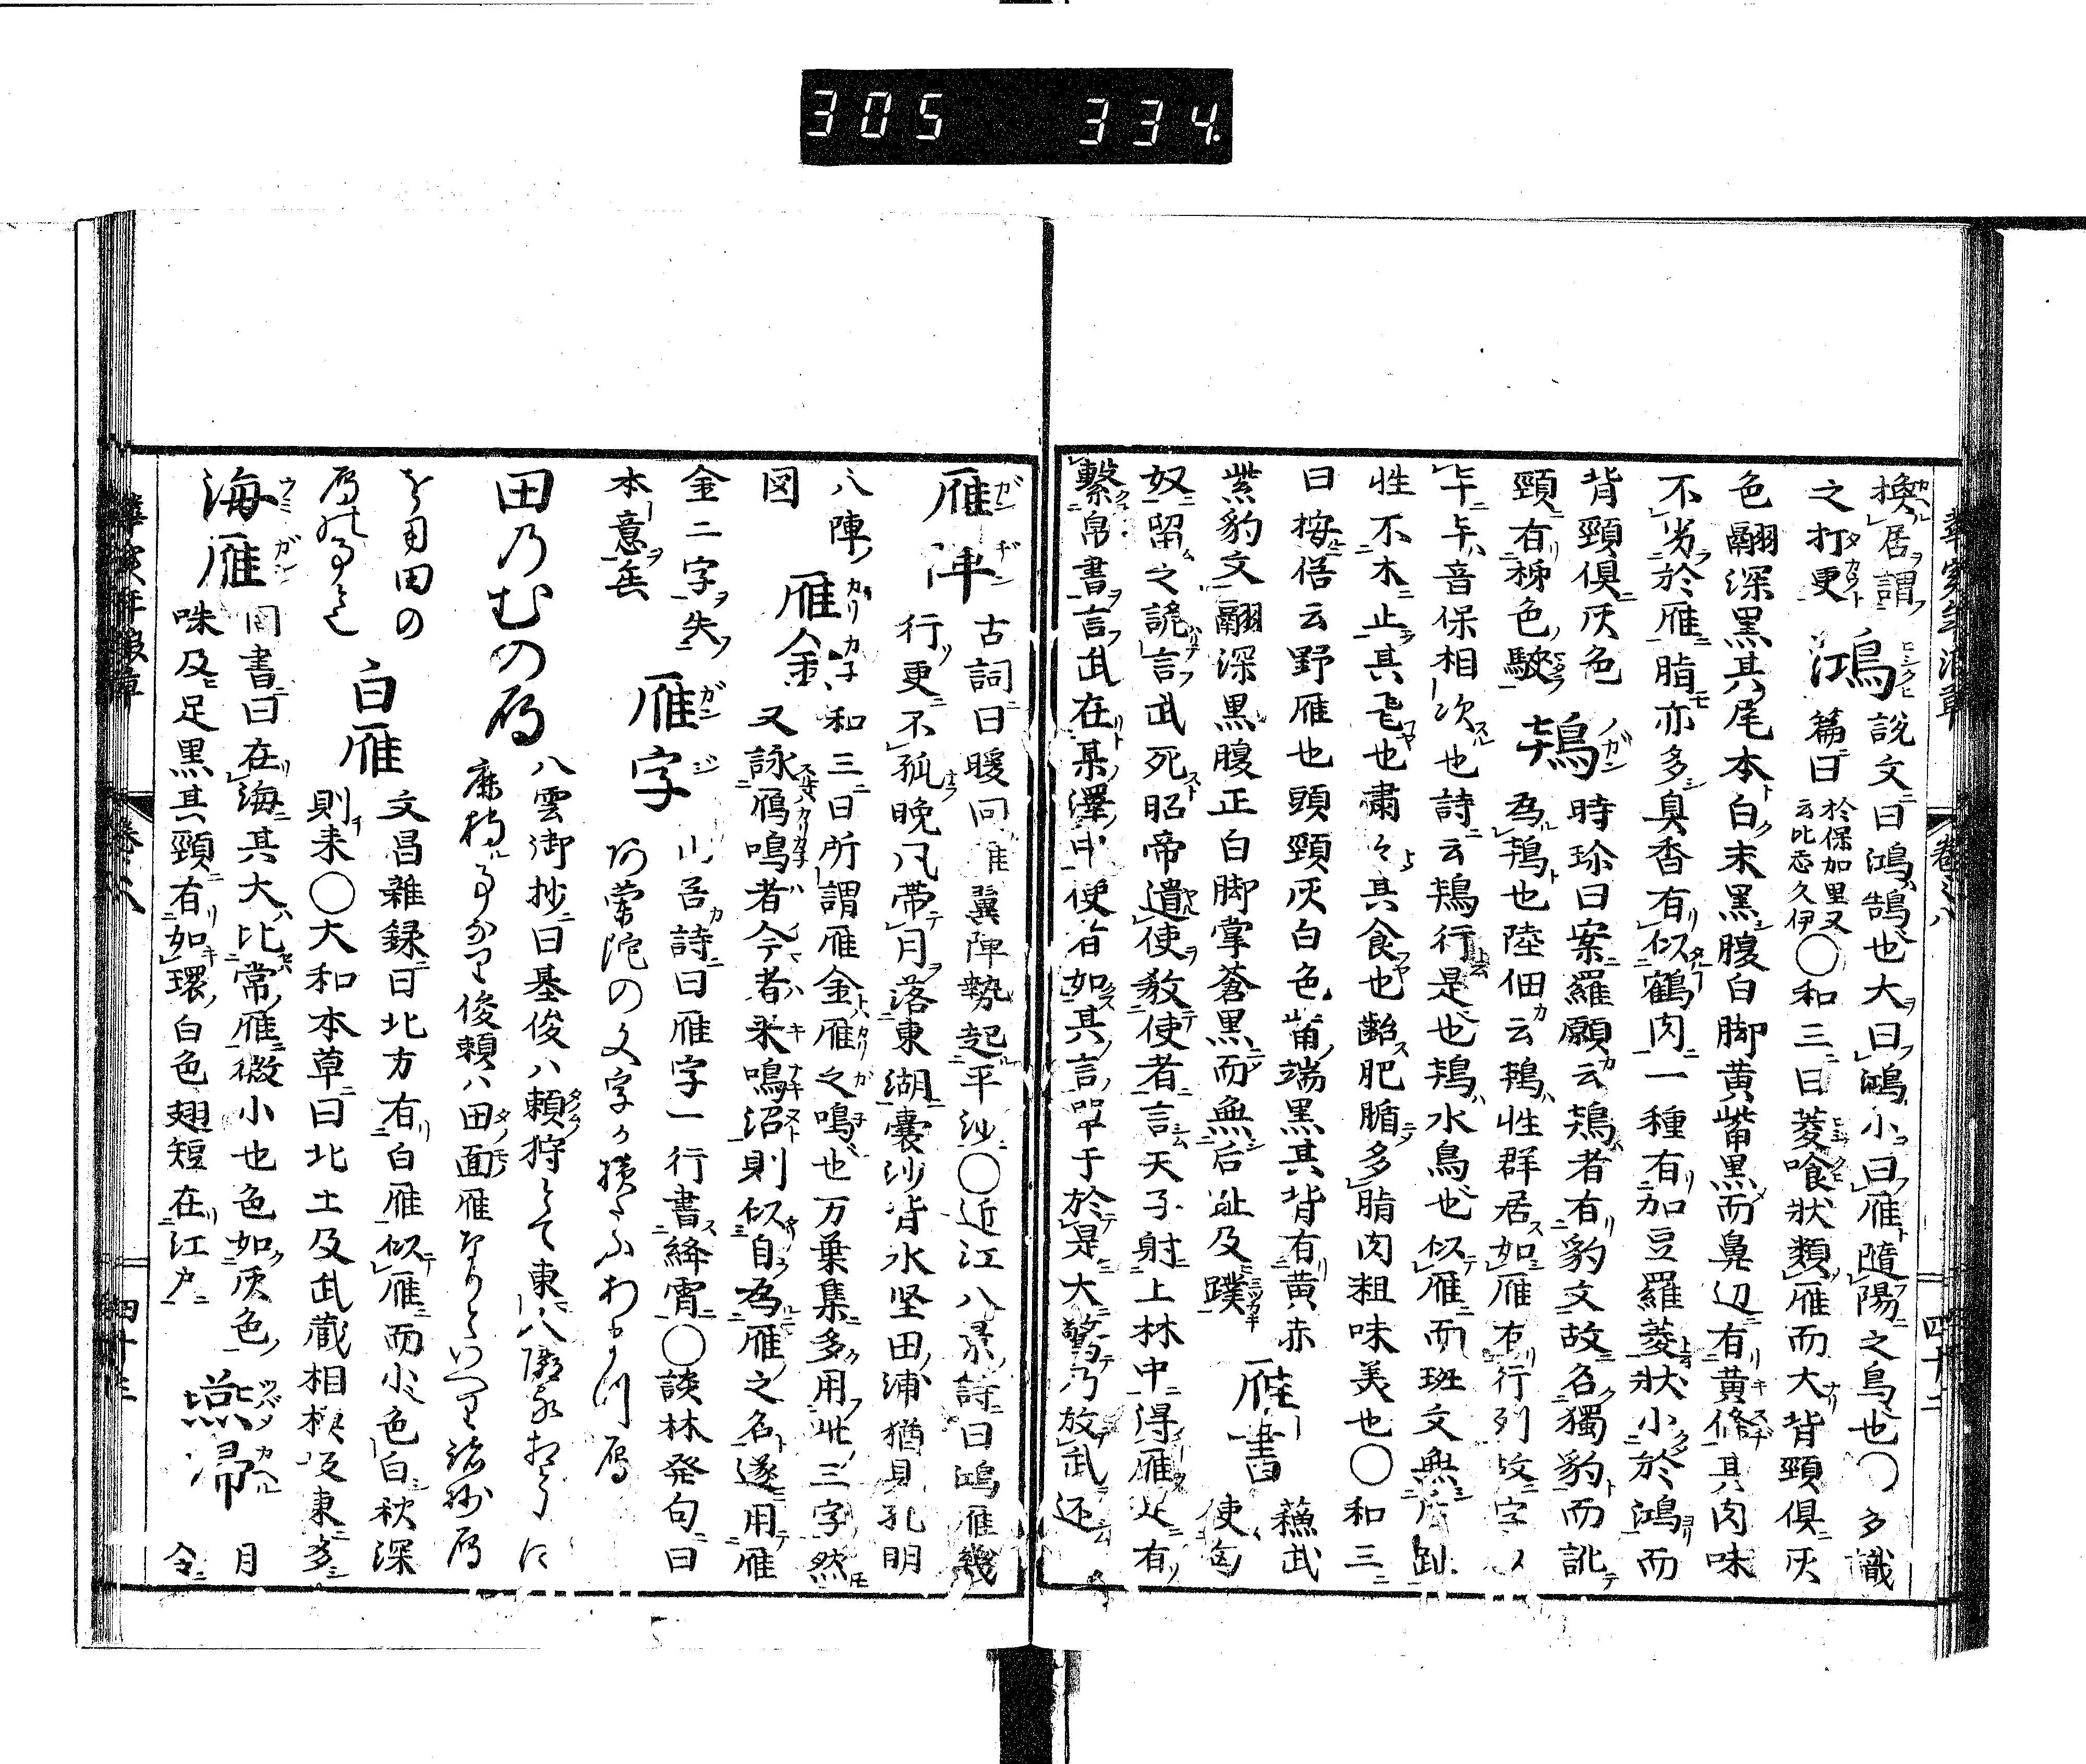 305 334
換居謂
之打更
鴻
說文曰鴻鵠也大曰鴻小曰雁隨陽之鳥也〇多識
篇曰於保加里又云比志久伊〇和三曰菱喰狀類雁而大背頸俱灰
色翮深黑其尾本白末黑腹白脚黄觜黑而鼻辺有黄條其肉味
不劣於雁脂亦多臭香有似鶴肉一種有加豆羅菱狀小於鴻而
背頸俱灰色
鴇
時珍曰案羅願云鴇者有豹文故名獨豹而訛
頸有秭色駮
為鴇也陸佃云鴇性群居如雁有行列故字从
𠦒𠦒音保相次也詩云鴇行是也鴇水鳥也似雁而斑文無后趾
性不木止其飛也肅々其食也齝肥腯多脂肉粗味美也〇和三
曰按俗云野雁也頭頸灰白色觜端黑其背有黄赤
紫豹文翮深黑腹正白脚掌蒼黑而無后趾及蹼
雁書
蘇武
使匈
奴留之詭言武死昭帝遣使教使者言天子射上林中得雁足有
繫帛書言武在某澤中使者如其言單于於是大驚乃放武还
雁陣
古詞曰暖回雁翼陣勢起平沙〇近江八景詩曰鴻雁幾
行更不孤晩風帯月落東湖囊沙背水堅田浦猶見孔明
八陣
図
雁金
和三曰所謂雁金雁之鳴也万葉集多用此三字然
又詠鴈鳴者今者来鳴沼則似自為雁之名遂用雁
金二字失
本意矣
雁字
山谷詩曰雁字一行書絳霄〇談林発句曰
阿蘭陀の文字か横たふわたつ鴈
田乃むの鴈
八雲御抄曰基俊ハ頼狩とて東八
鹿狩事なり俊頼ハ田面雁なりといへり
を田の
鴈
白雁
文昌雜録曰北方有白雁似雁而小色白秋深
則来〇大和本草曰北土及武蔵相模坂東多
海雁
同書曰在海其大比常雁微小也色如灰色
咮及足黑其頸有如環白色翅短在江戸
燕帰
月
令